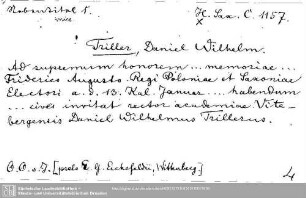 H. Sax. C. 1157.
Triller, Daniel Wilhelm.
Ad supremum honorem ... memoriae ...
Friderici Augusti Regi Poloniae et Saxoniae
Electori a. d. 13. Kal. Januar ... habendum
... cives invitat rector academiae Vite-
bergensis Daniel Wilhelmus Trillerus.
O. O. u. J. [prelo E. G. Eichsfeldii, Wittenberg]
4
Sächsische Landesbibliothek -
Staats- und Universitätsbibliothek Dresden